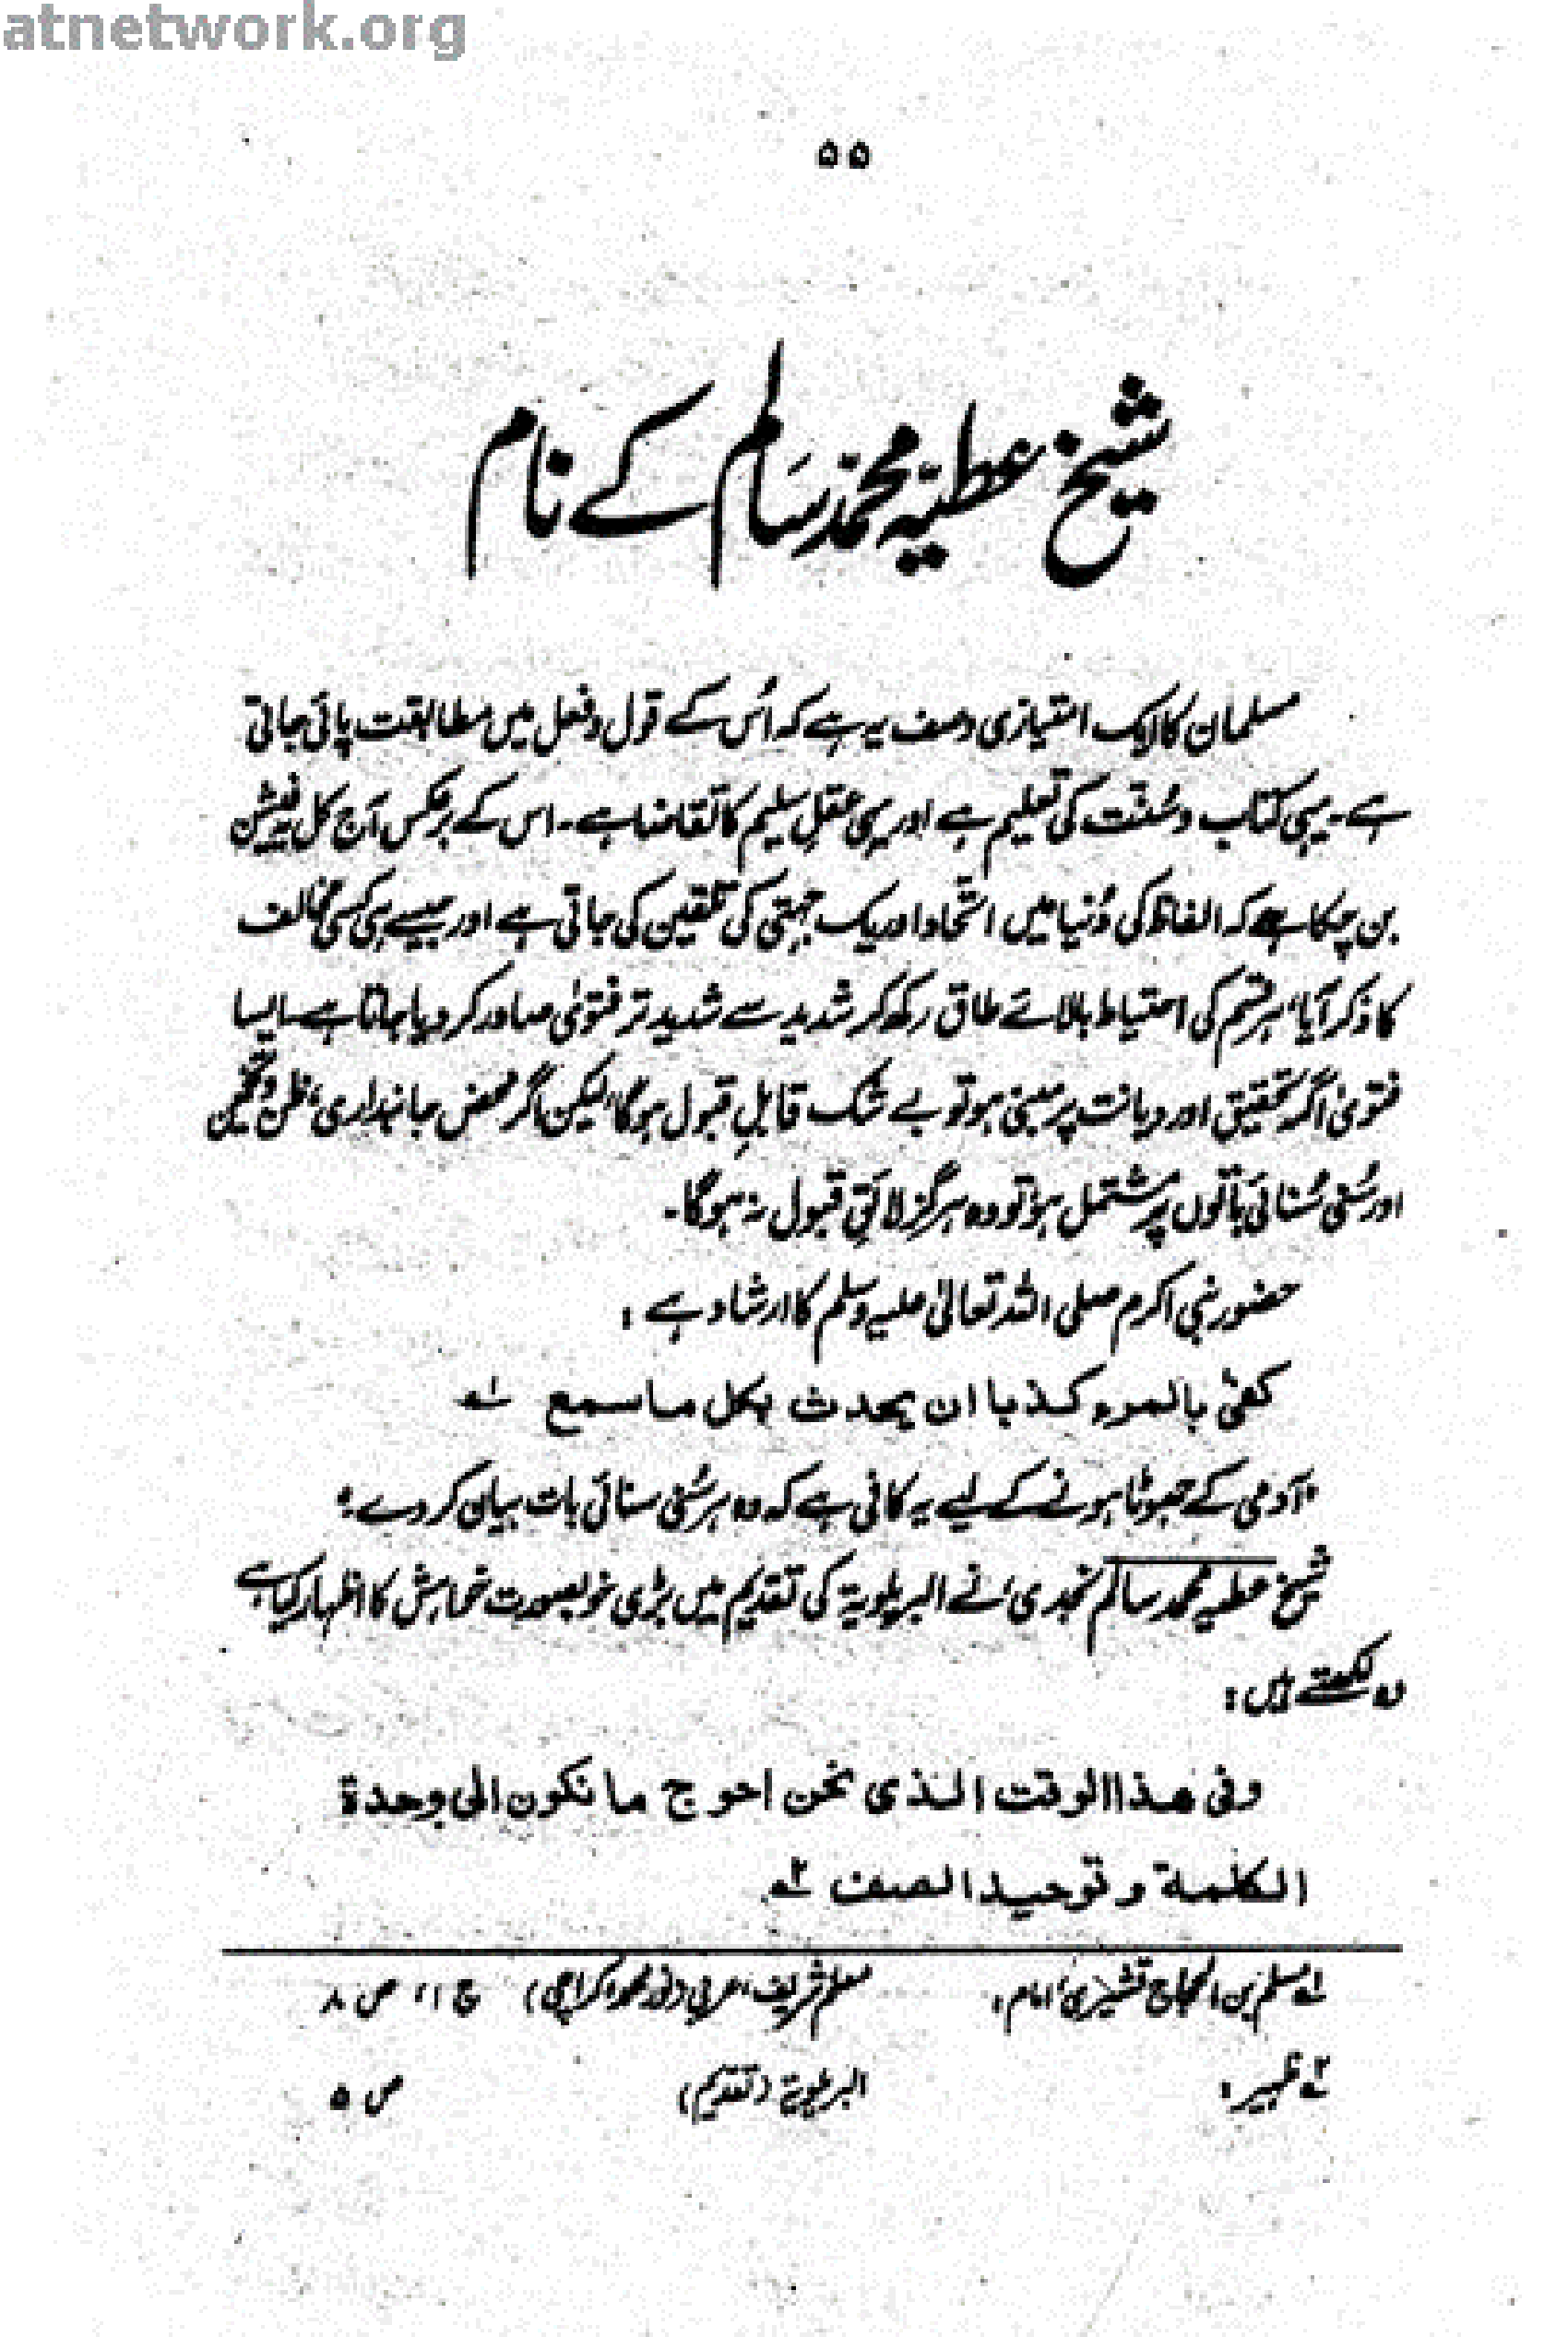 atnetwork.org
۵۵
شیخ عطیّہ محمّد سَالم کے نام
مسلمان کا ایک امتیازی وصف یہ ہے کہ اُس کے قول و فعل میں مطابقت پائی جاتی
ہے۔ یہی کتاب و سُنّت کی تعلیم ہے اور یہی عقلِ سلیم کا تقاضا ہے۔ اس کے برعکس آج کل یہ فیشن
بن چکا ہے کہ الفاظ کی دُنیا میں اتّحاد اور یک جہتی کی تلقین کی جاتی ہے اور جیسے ہی کسی مخالف
کا ذکر آیا، ہر قسم کی احتیاط بالائے طاق رکھ کر شدید سے شدید تر فتویٰ صادر کر دیا جاتا ہے۔ ایسا
فتویٰ اگر تحقیق اور دیانت پر مبنی ہو تو بے شک قابلِ قبول ہوگا، لیکن اگر محض جانبداری، ظن و تخمین
اور سُنی سُنائی باتوں پر مشتمل ہو، تو وہ ہرگز لائقِ قبول نہ ہوگا۔
حضور نبی اکرم صلی اللہ تعالیٰ علیہ وسلم کا ارشاد ہے :
کفیٰ بالمرء کذبا ان یحدث بکل ما سمع ۱؎
"آدمی کے جھوٹا ہونے کے لیے یہ کافی ہے کہ وہ ہر سُنی سنائی بات بیان کر دے۔"
شیخ عطیہ محمد سالم نجدی نے البریلویۃ کی تقدیم میں بڑی خوبصورت خواہش کا اظہار کیا ہے
وہ لکھتے ہیں :
وفی ھذا الوقت الذی نحن احوج ما نکون الی وحدۃ
الکلمۃ و توحید الصف ۲؎
۱؎ مسلم بن الحجاج قشیری، امام : مسلم شریف، عربی (نور محمد، کراچی) ج ۱، ص ۸
۲؎ ظہیر : البریلویۃ (تقدیم) ص ۵